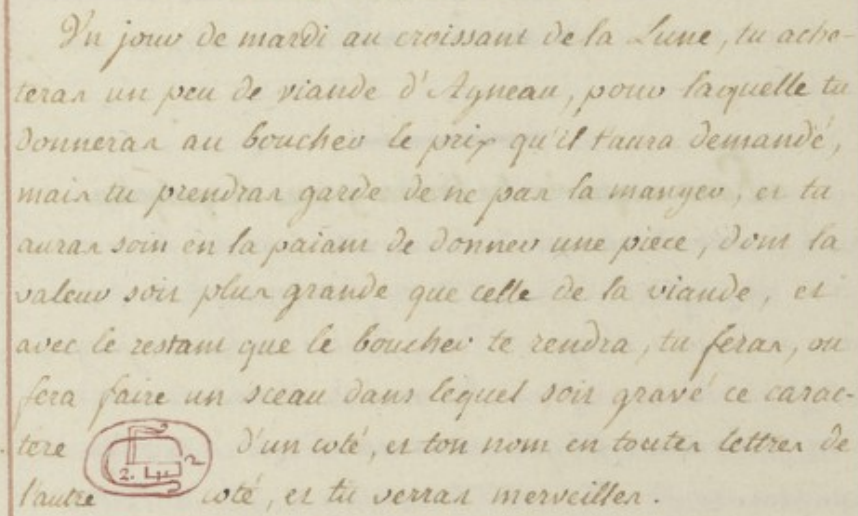 Un jour de mardi au croissant de la Lune, tu ache-
teras un peu de viande d'Agneau, pour laquelle tu
donneras au boucher le prix qu'il t'aura demandé,
mais tu prendras garde de ne pas la manger, et tu
auras soin en la paiant de donner une piece, dont la
valeur soit plus grande que celle de la viande, et
avec le restant que le boucher te rendra, tu feras, ou
fera faire un sceau dans lequel soit gravé ce carac-
tere d'un coté, et ton nom en toutes lettres de
l'autre coté, et tu verras merveilles.